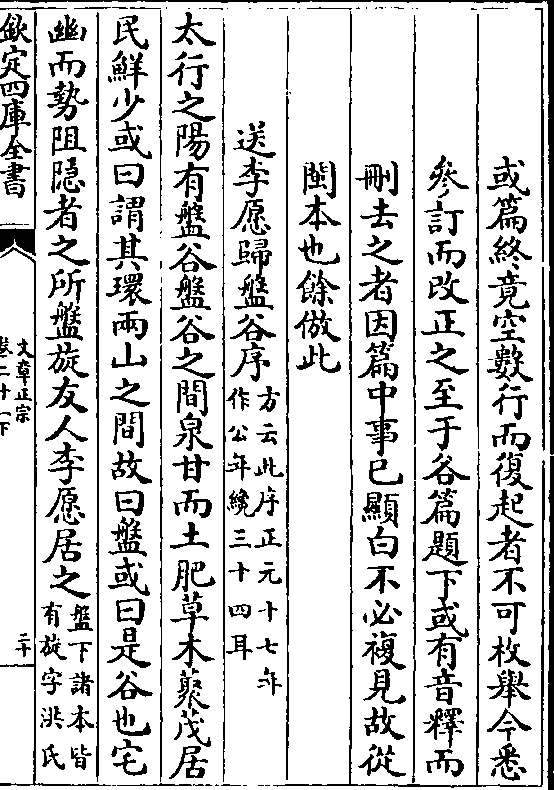 或篇終竟空數行而復起者不可枚舉今悉
參訂而改正之至于各篇題下或有音釋而
刪去之者因篇中事已顯白不必複見故從
閩本也餘倣此
送李愿歸盤谷序方云此序正元十七年
作公年纔三十四耳
太行之陽有盤谷盤谷之間泉甘而土肥草木藂茂居
民鮮少或曰謂其環兩山之間故曰盤或曰是谷也宅
幽而勢阻隐者之所盤旋友人李愿居之盤下諸本皆
有旋字洪氏
欽定四庫全書
文章正宗
卷二十一下
二十